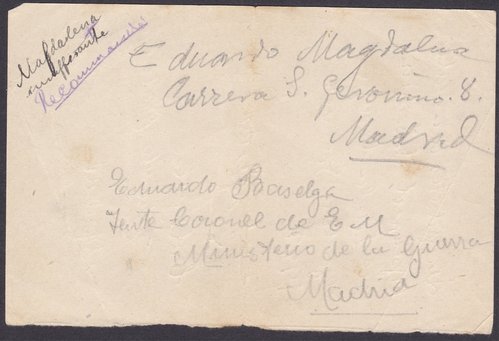 Magdalena
Recommandée
Eduardo Magdalena
Carrera S. Geronimo. 8.
Madrid
Eduardo Baselga
Tente Coronel de E M
Ministerio de la Guerra
Madrid